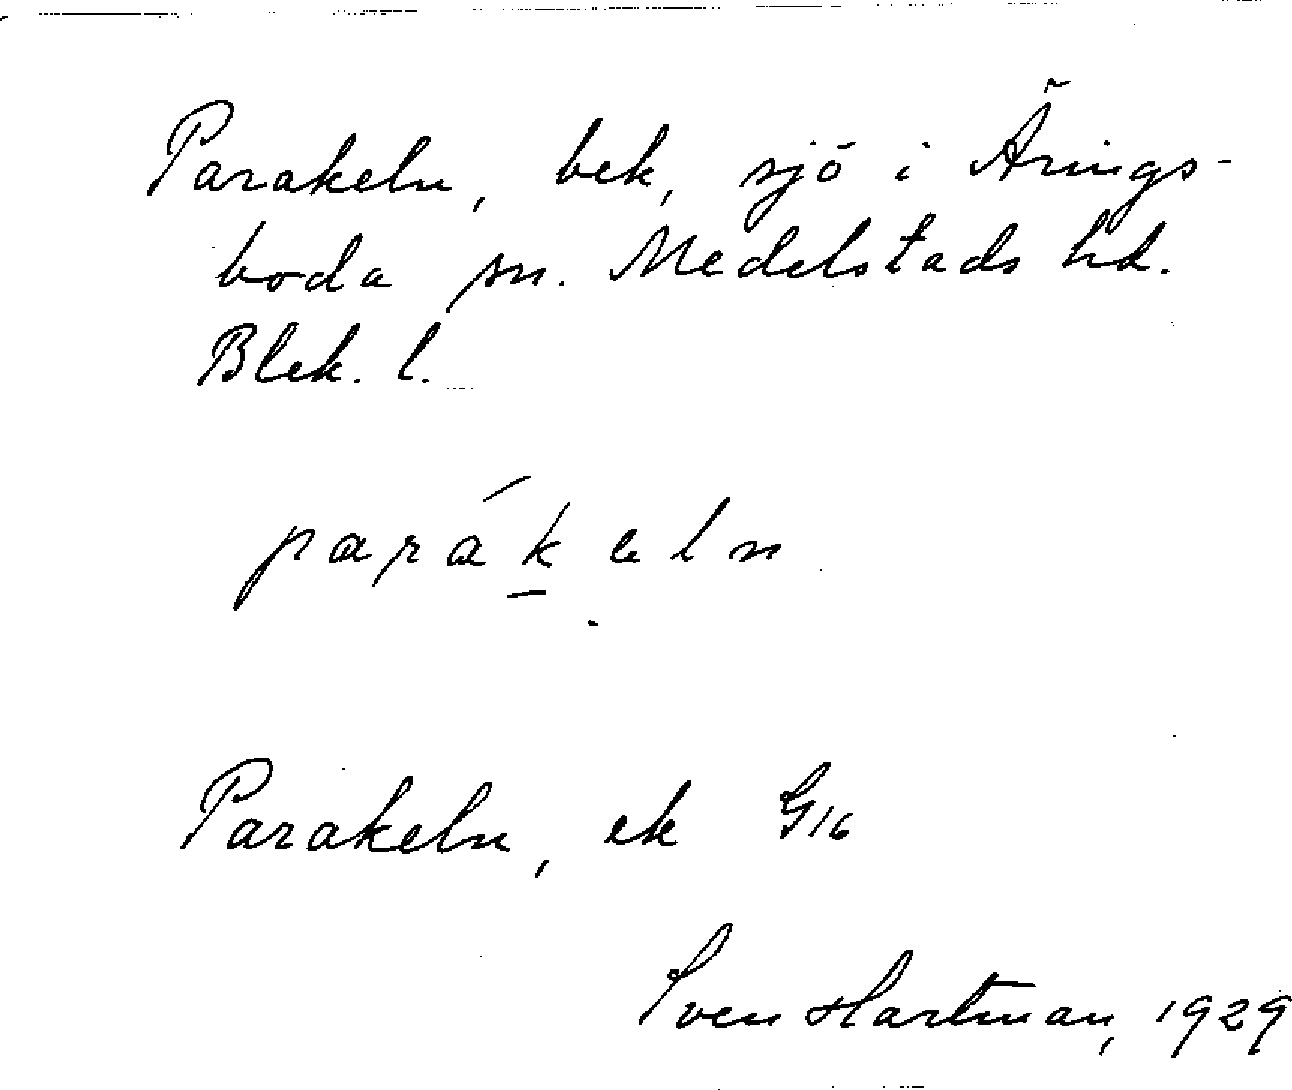 Parakeln, bek, sjö i Ärings-
boda sn. Medelstads hd.
Blek. l.
paráḵeln
Parakeln, ek G16
Sven Hartman, 1929